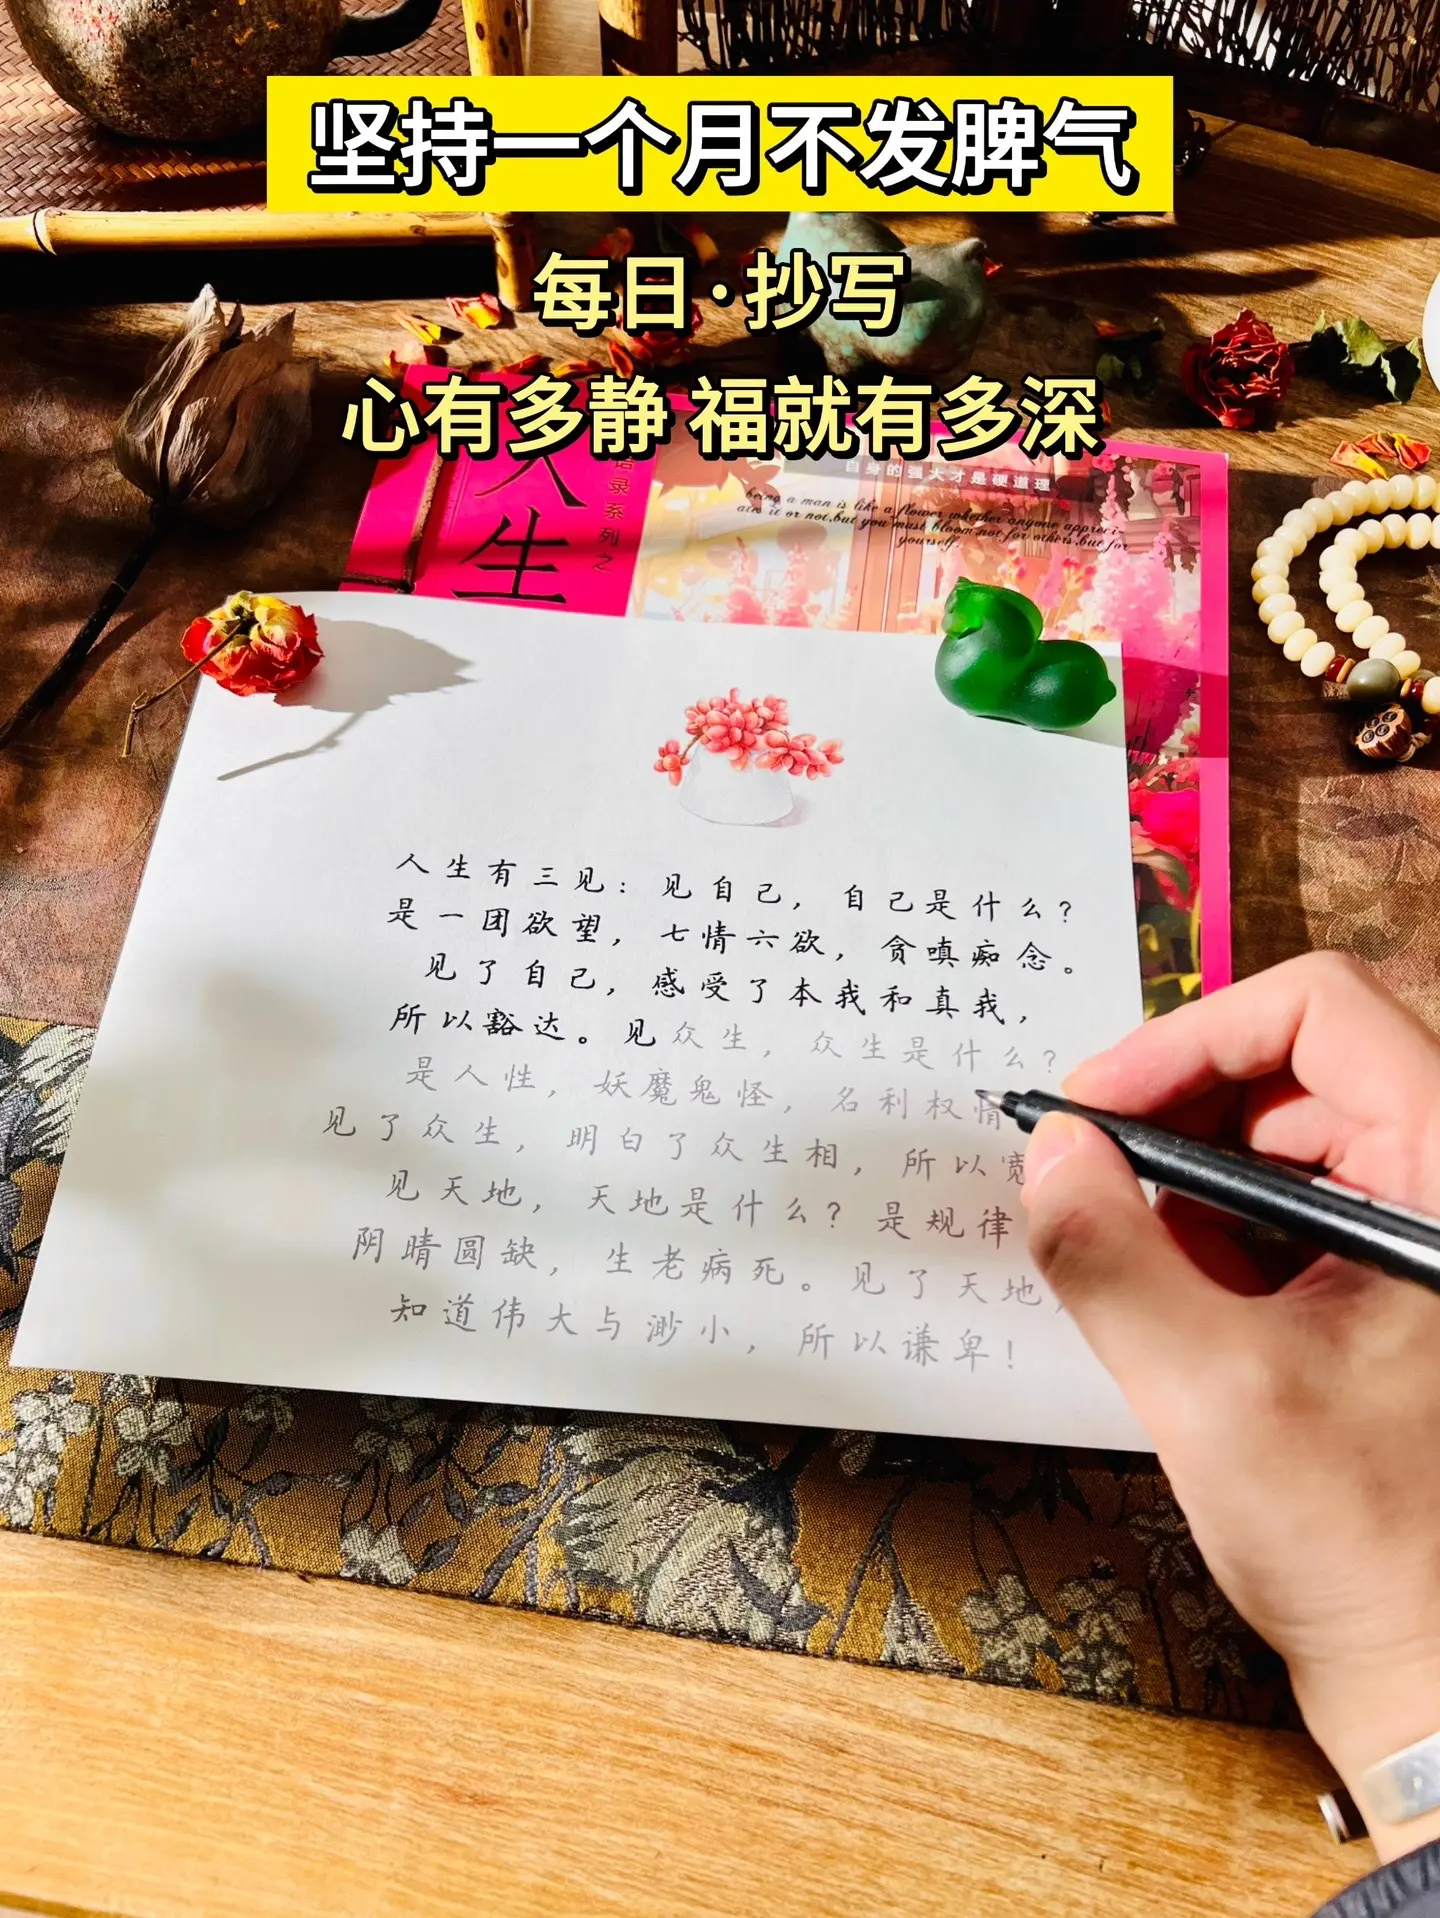 坚持一个月不发脾气
每日·抄写
心有多静 福就有多深
人生
语录系列之
自身的强大才是硬道理
being a man is like a flower whether anyone appreci-
ates it or not,but you must bloom not for others,but for
yourself.
人生有三见：见自己，自己是什么？
是一团欲望，七情六欲，贪嗔痴念。
见了自己，感受了本我和真我，
所以豁达。见众生，众生是什么？
是人性，妖魔鬼怪，名利权情
见了众生，明白了众生相，所以宽
见天地，天地是什么？是规律
阴晴圆缺，生老病死。见了天地，
知道伟大与渺小，所以谦卑！